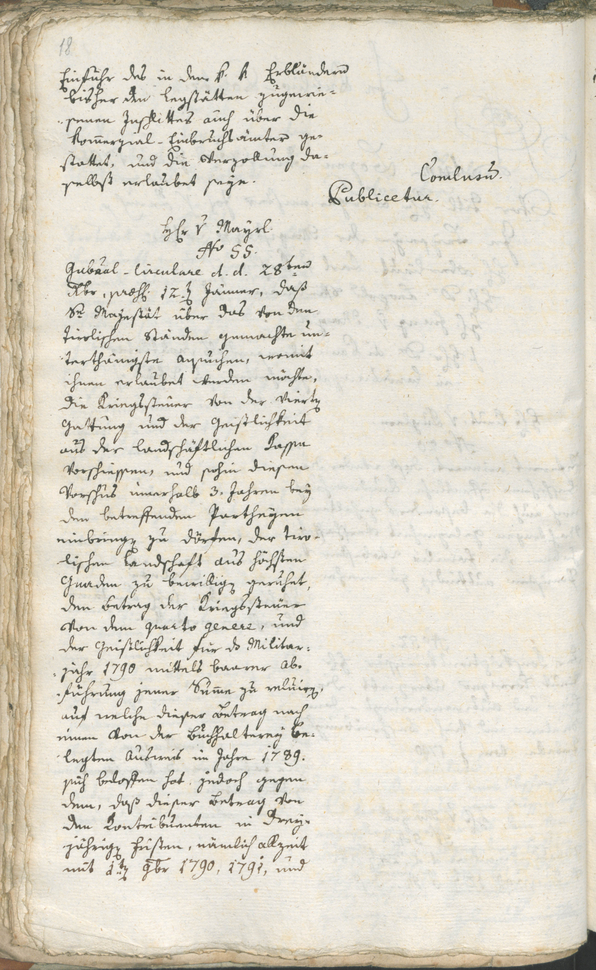 18
Einfuhr des in dem k. k. Erbländern
bisher den Legstätten zugewie-
senen Inslittes auch über die
Kommerzial-Einbruchsämter ge-
stattet, und die Verzollung da-
selbst erlaubet seye.
Conclusum.
Publicetur.
Hr v Mayrl.
No 55.
Gubernal-Circulare d. d. 28ten
Xbr, 12. Jänner, daß
Se Majestät über das von den
tirolischen Ständen gemachte un-
terthänigste Ansuchen, womit
ihnen erlaubet werden möchte,
die Kriegssteuer von der vierten
Gattung und der Geistlichkeit
aus der landschäftlichen Kasse
vorschiessen, und sohin diesen
Vorschus innerhalb 3. Jahren bey
den betreffenden Partheyen
einbringen zu dörfen, der tiro-
lischen Landschaft aus höchsten
Gnaden zu bewilligen geruhet,
den Betrag der Kriegssteuer
von dem quarto genere, und
der Geistlichkeit für das Militar-
jahr 1790 mittels baarer Ab-
führung jener Summe zu reluiren,
auf welche dieser Betrag nach
einem von der Buchhalterey be-
legten Ausweis im Jahre 1789.
sich beloffen hat, jedoch gegen
dem, daß dieser Betrag von
den Kontribuenten in drey-
jährigen Fristen, nämlich allzeit
mit 1ten 9br 1790, 1791, und